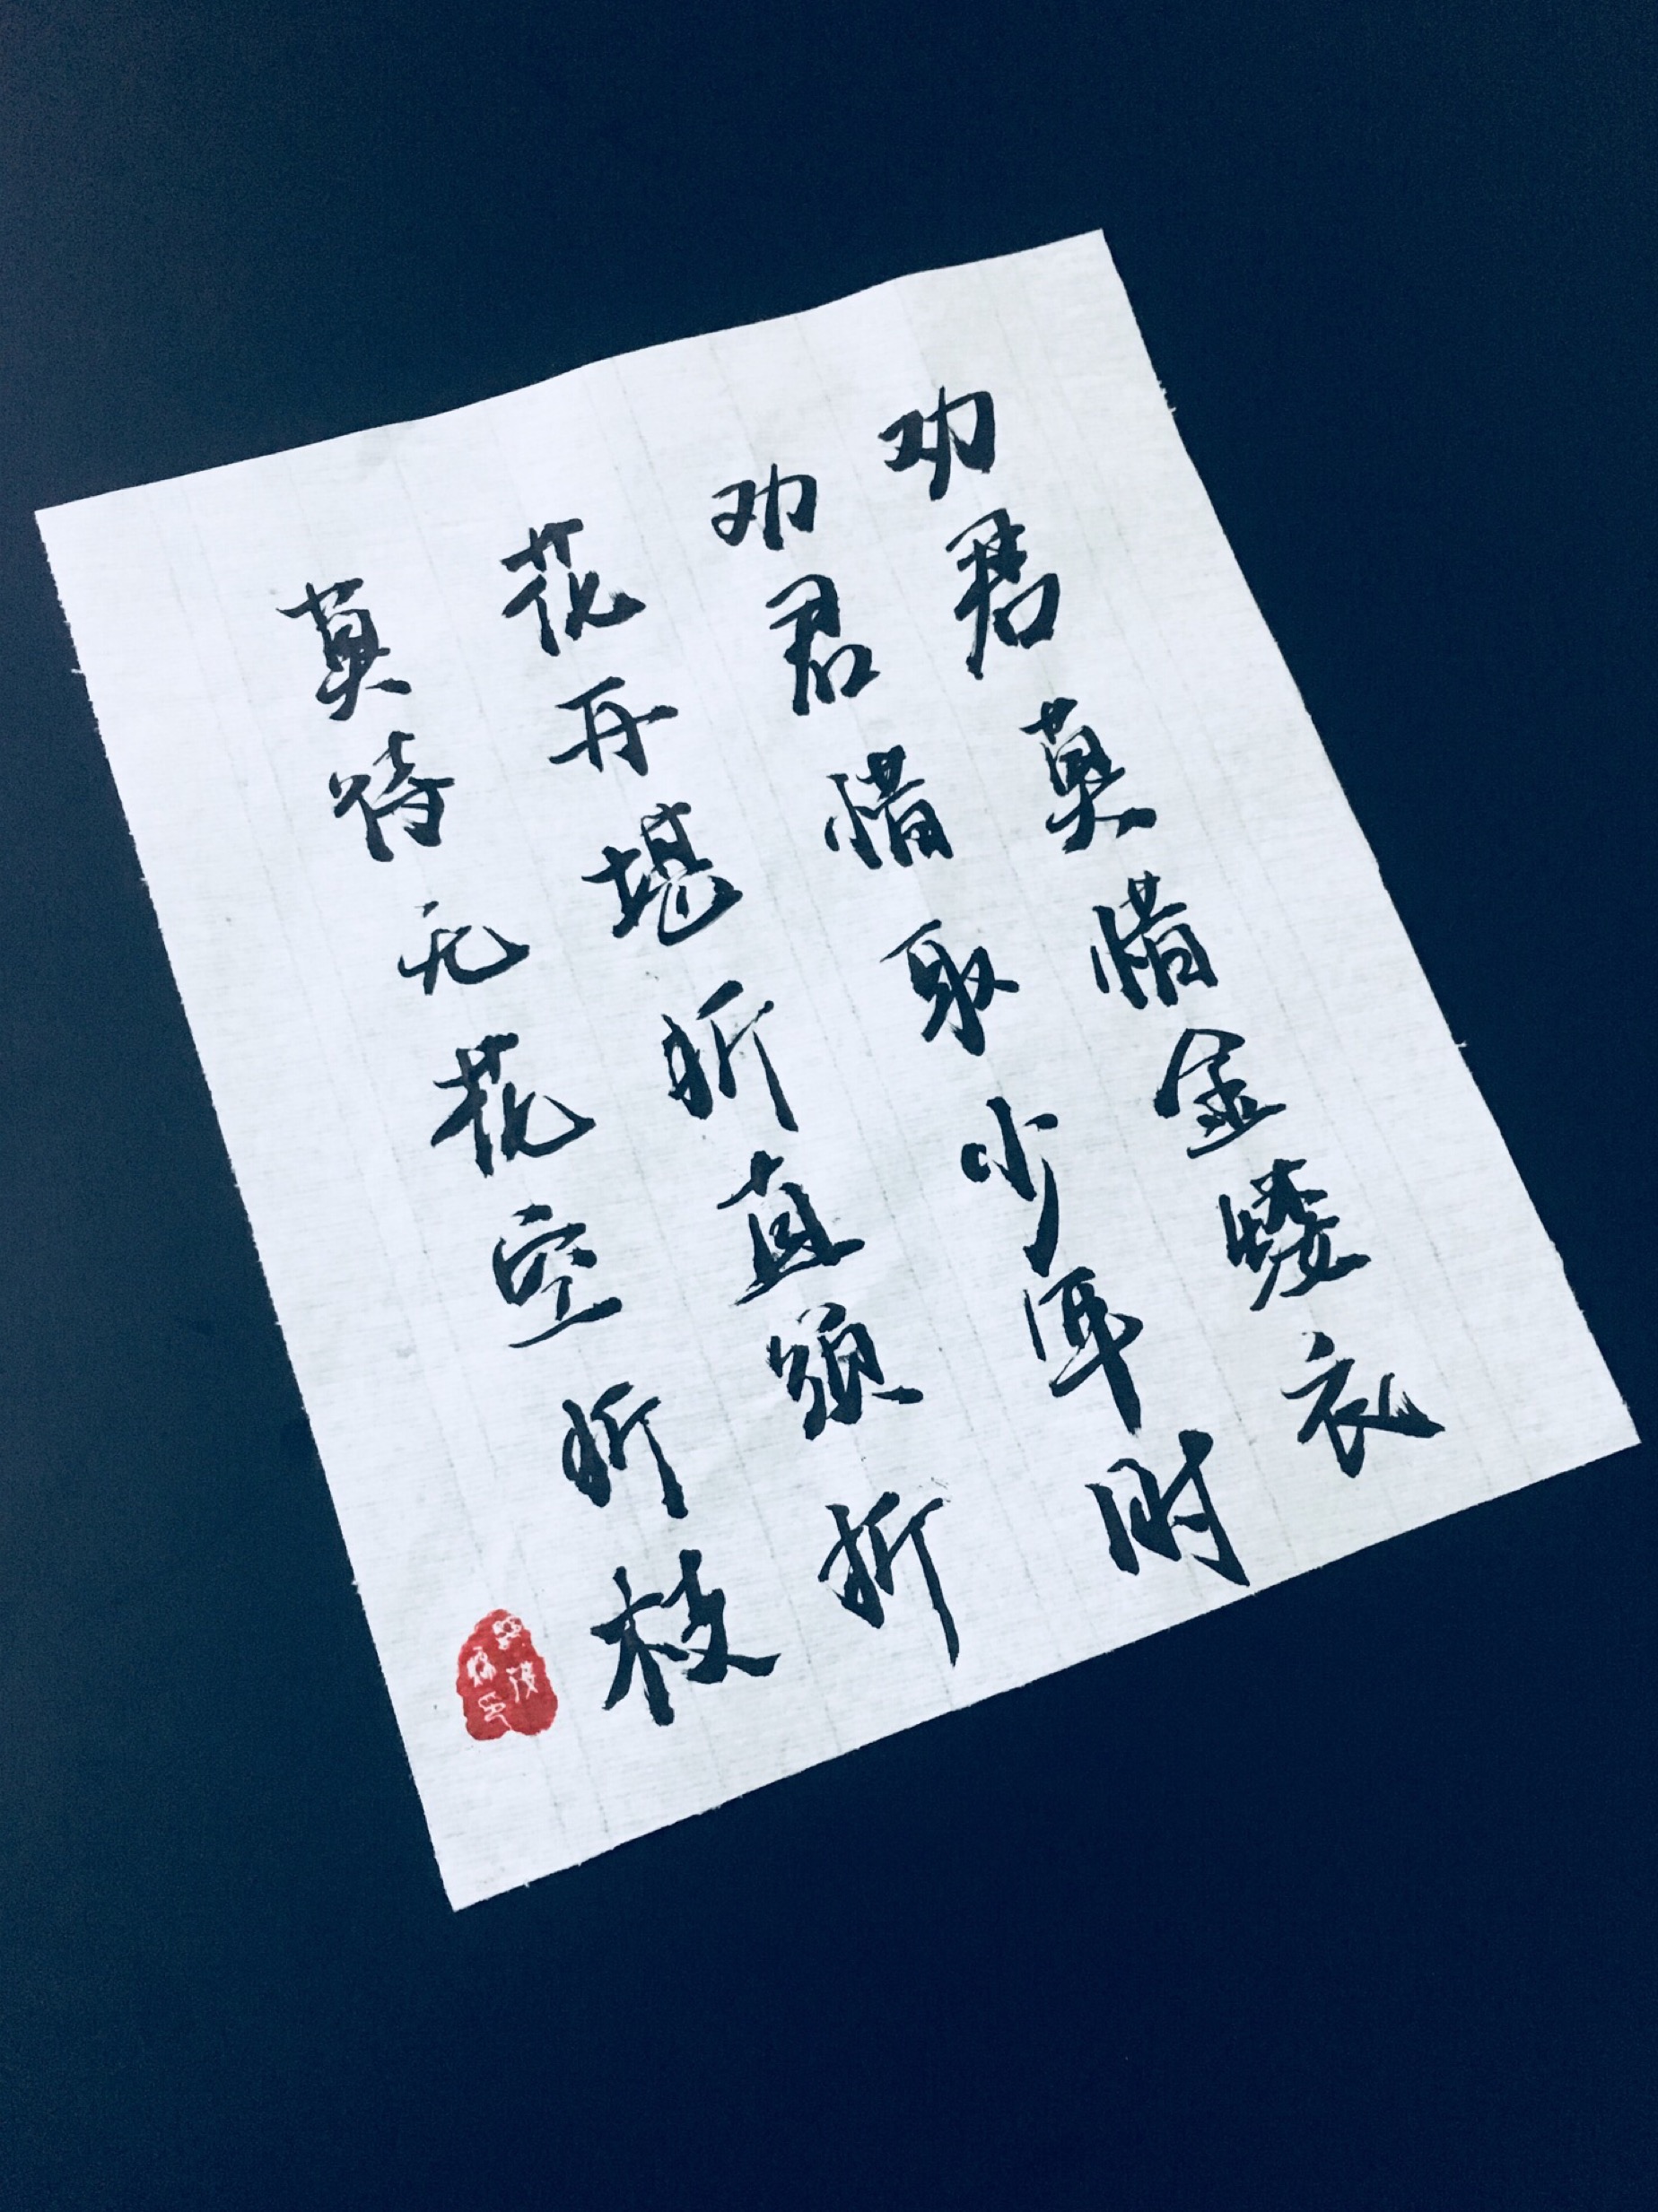 劝君莫惜金缕衣
劝君惜取少年时
花开堪折直须折
莫待无花空折枝